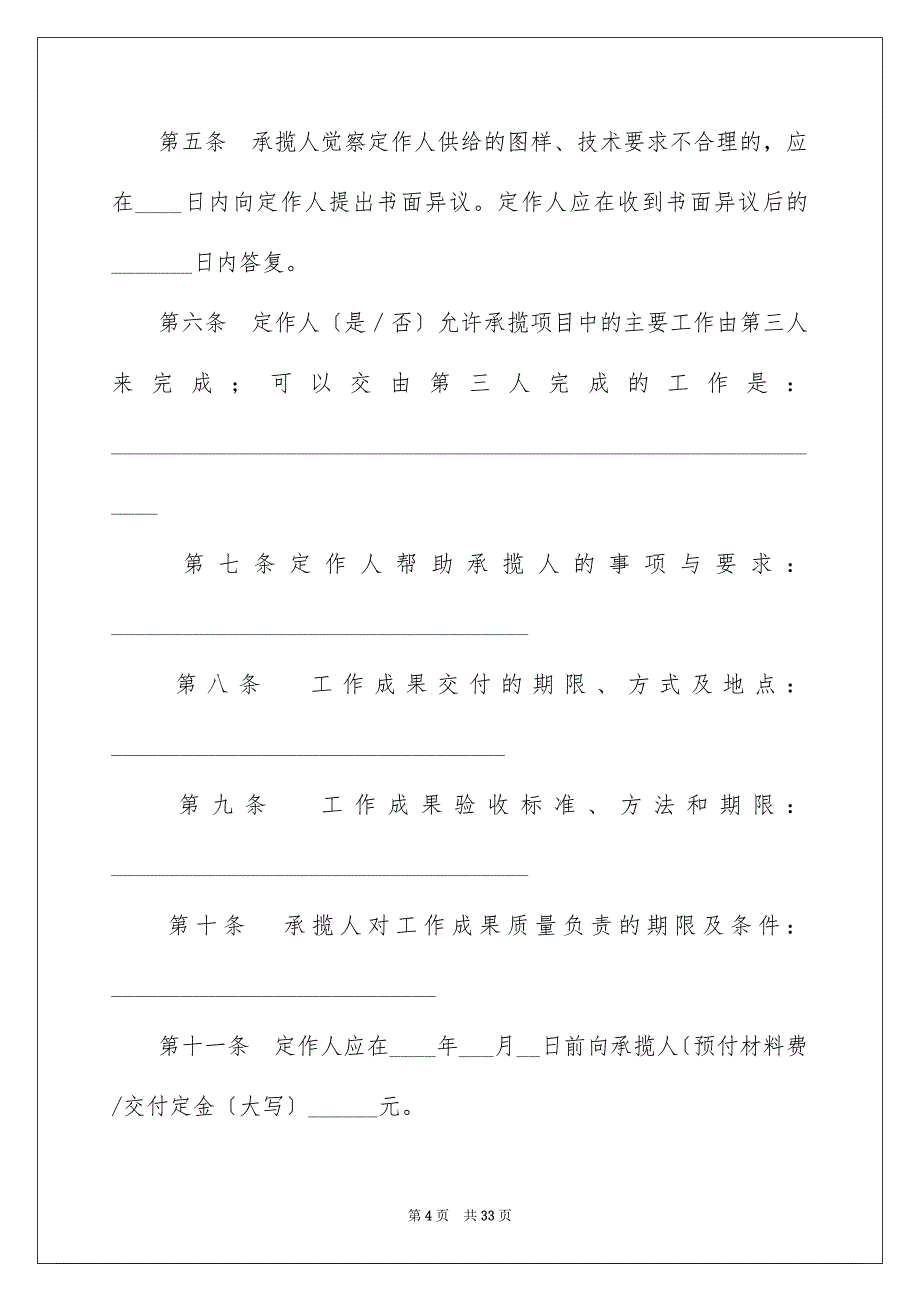 第五条　承揽人觉察定作人供给的图样、技术要求不合理的，应
在____日内向定作人提出书面异议。定作人应在收到书面异议后的
_______日内答复。
第六条　定作人〔是／否〕允许承揽项目中的主要工作由第三人
来完成；可以交由第三人完成的工作是：
____________________________________________________________
____
第七条定作人帮助承揽人的事项与要求：
____________________________________
第八条　工作成果交付的期限、方式及地点：
__________________________________
第九条　工作成果验收标准、方法和期限：
____________________________________
第十条　承揽人对工作成果质量负责的期限及条件：
____________________________
第十一条　定作人应在____年___月__日前向承揽人〔预付材料费
/交付定金〔大写〕______元。
第 4 页　共 33 页